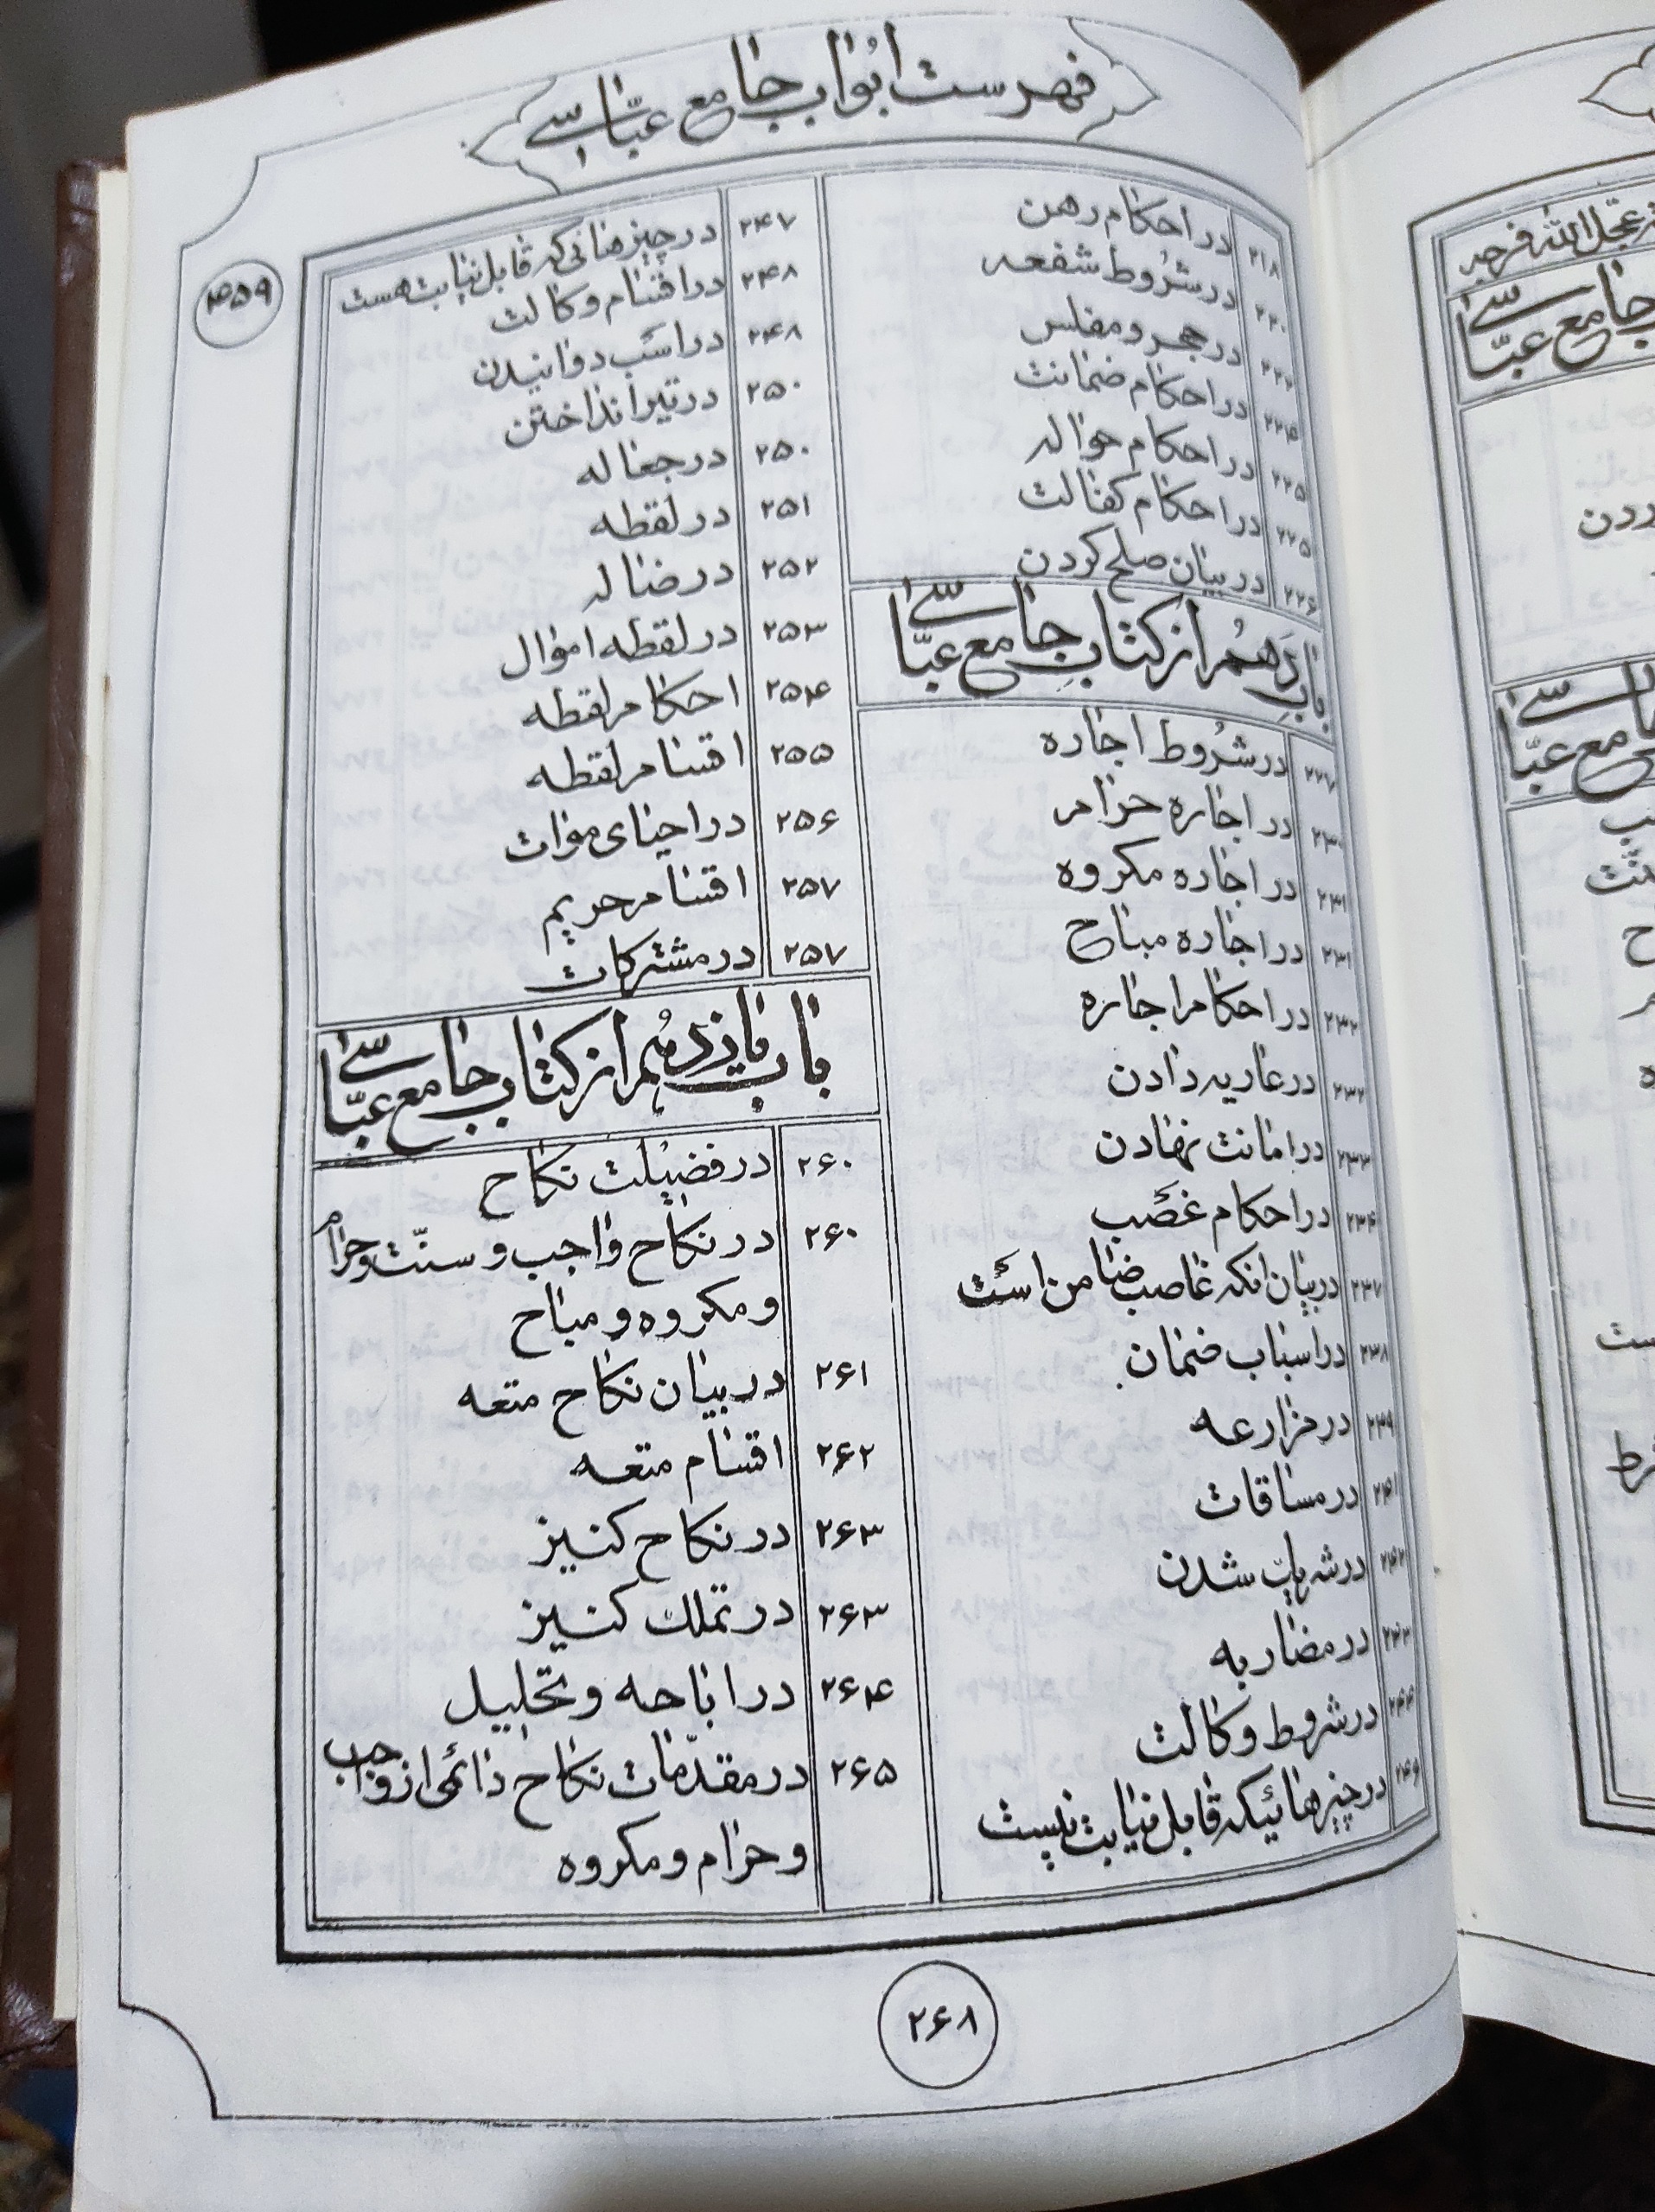 فهرست ابواب جامع عباسی
۴۵۹
۲۱۸ در احکام رهن
۲۲۰ در شروط شفعه
۲۲۲ در حجر و مفلس
۲۲۴ در احکام ضمانت
۲۲۵ در احکام حواله
۲۲۵ در احکام کفالت
۲۲۶ در بیان صلح کردن
باب دهم از کتاب جامع عباسی
۲۲۷ در شروط اجاره
۲۳۰ در اجاره حرام
۲۳۱ در اجاره مکروه
۲۳۱ در اجاره مباح
۲۳۲ در احکام اجاره
۲۳۲ در عاریه دادن
۲۳۳ در امانت نهادن
۲۳۴ در احکام غصب
۲۳۷ در بیان انکه غاصب ضامن است
۲۳۸ در اسباب ضمان
۲۳۹ در مزارعه
۲۴۱ در مساقات
۲۴۲ در شریک شدن
۲۴۳ در مضاربه
۲۴۴ در شروط وکالت
۲۴۶ در چیزهائیکه قابل نیابت نیست
۲۴۷ در چیزهائی که قابل نیابت هست
۲۴۸ در اقسام وکالت
۲۴۸ در اسب دوانیدن
۲۵۰ در تیر انداختن
۲۵۰ در جعاله
۲۵۱ در لقطه
۲۵۲ در ضاله
۲۵۳ در لقطه اموال
۲۵۴ احکام لقطه
۲۵۵ اقسام لقطه
۲۵۶ در احیای موات
۲۵۷ اقسام حریم
۲۵۷ در مشترکات
باب یازدهم از کتاب جامع عباسی
۲۶۰ در فضیلت نکاح
۲۶۰ در نکاح واجب و سنّت و حرام
و مکروه و مباح
۲۶۱ در بیان نکاح متعه
۲۶۲ اقسام متعه
۲۶۳ در نکاح کنیز
۲۶۳ در تملک کنیز
۲۶۴ در اباحه و تحلیل
۲۶۵ در مقدّمات نکاح دائمی از واجب
و حرام و مکروه
۲۶۸
عجل الله فرجه
جامع عباسی